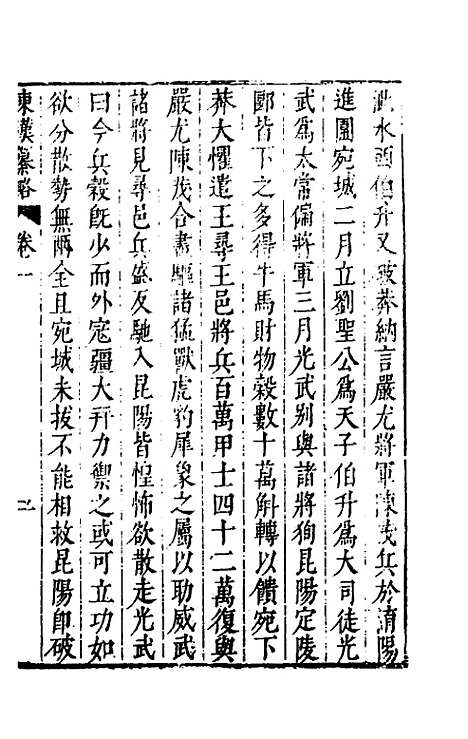 泚水西伯升又破莽納言嚴尤將軍陳茂兵於淯陽
進圍宛城二月立劉聖公爲天子伯升爲大司徒光
武爲太常偏將軍三月光武别與諸將徇昆陽定陵
郾皆下之多得牛馬財物穀數十萬斛轉以饋宛下
莽大懼遣王尋王邑將兵百萬甲士四十二萬復與
嚴尤陳茂合畫驅諸猛獸虎豹犀象之屬以助威武
諸將見尋邑兵盛反馳入昆陽皆惶怖欲散走光武
曰今兵穀旣少而外寇彊大幷力禦之或可立功如
欲分散勢無兩全且宛城未拔不能相救昆陽卽破
東漢纂略 卷一